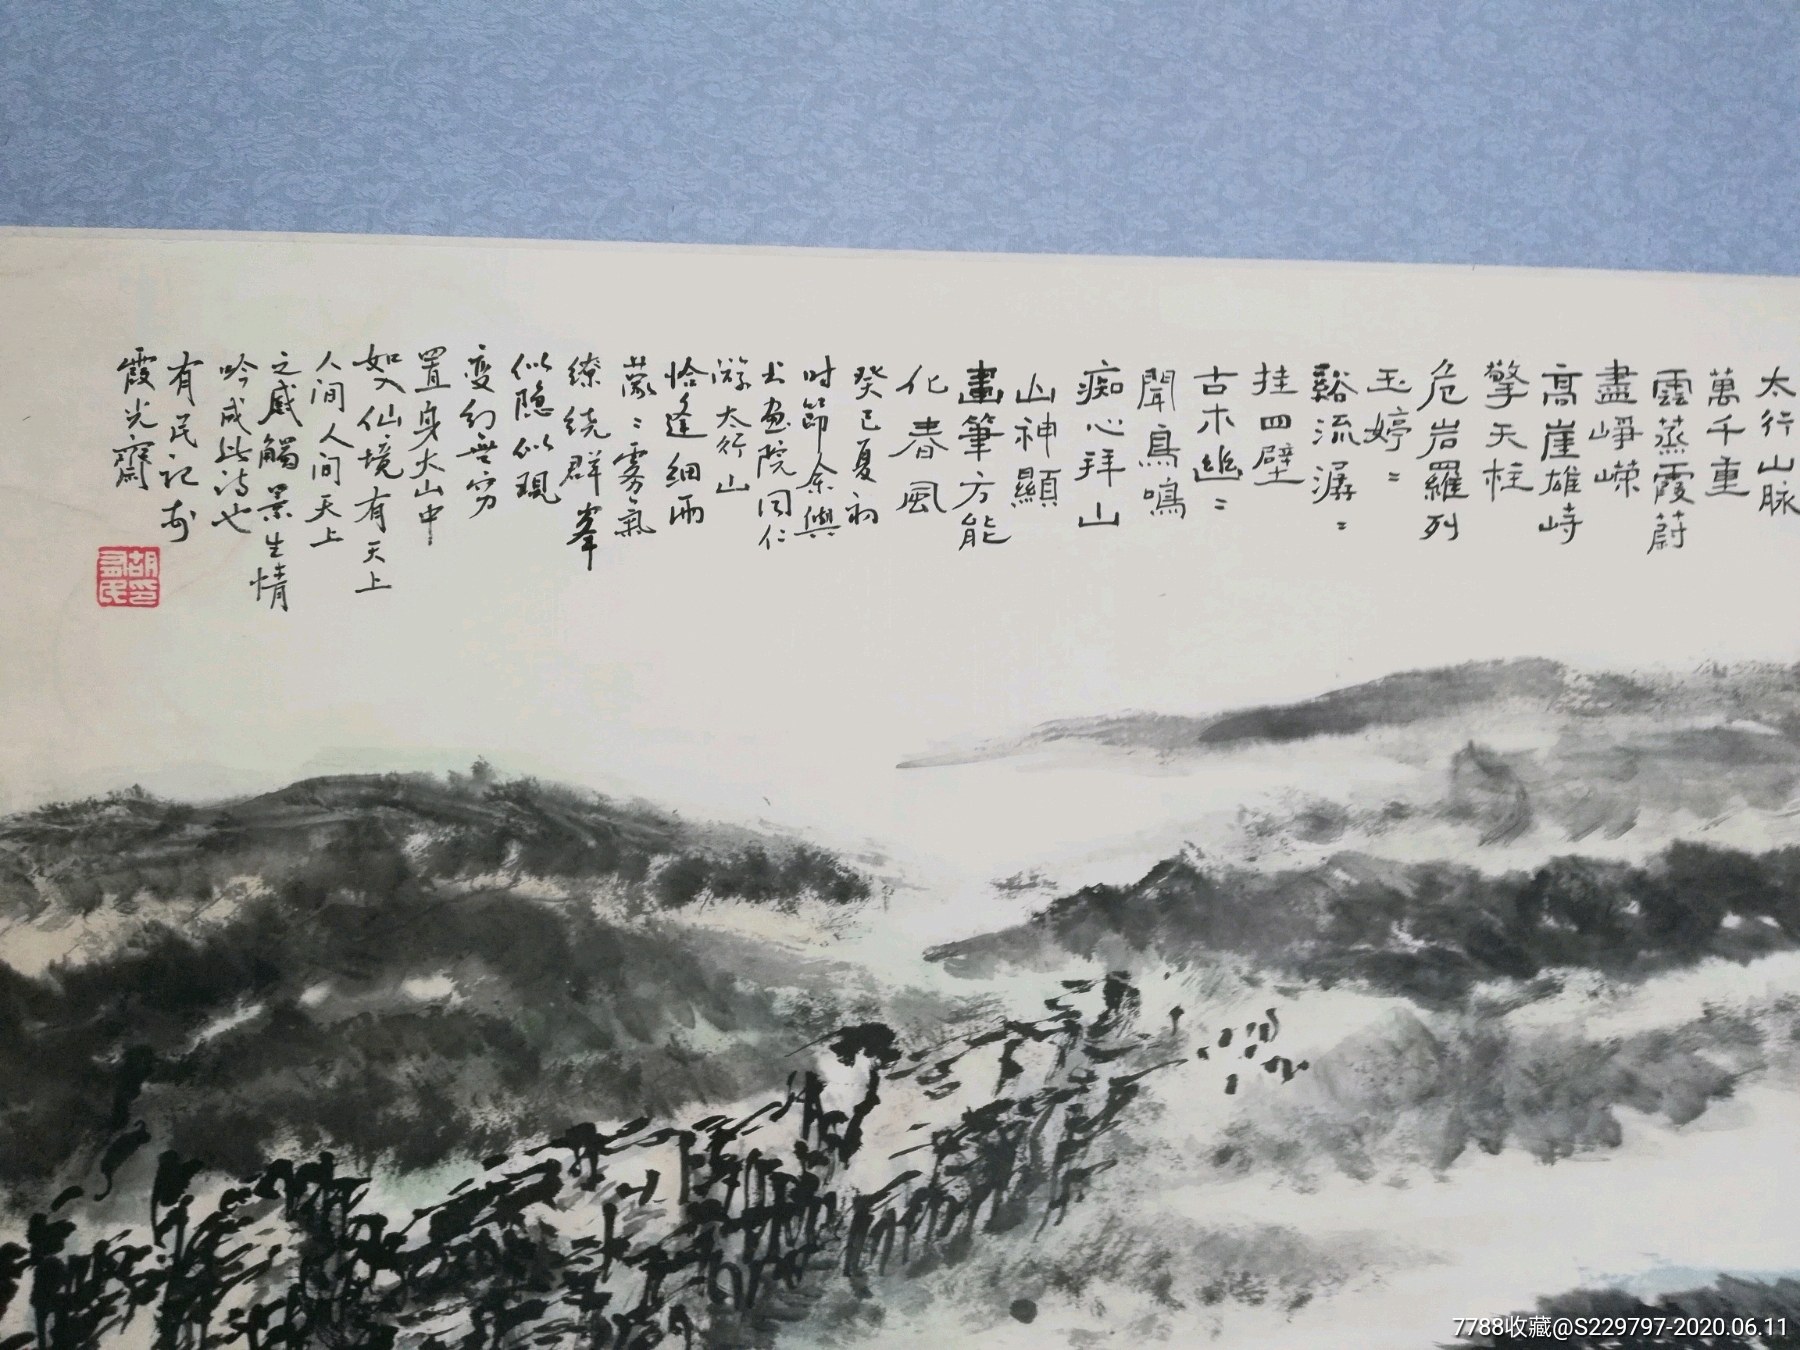 太行山脉
萬千重
雲蒸霞蔚
盡崢嶸
高崖雄峙
擎天柱
危岩羅列
玉婷〻
谿流潺〻
挂四壁
古木幽〻
聞鳥鳴
痴心拜山
山神顯
畫筆方能
化春風
癸巳夏初
时節余與
书画院同仁
游太行山
恰逢細雨
蒙〻雾氣
缭绕群峯
似隐似現
变幻無穷
置身大山中
如入仙境有天上
人间人间天上
之感觸景生情
吟成此诗也
有民记於
霞光齋
胡印
有民
7788收藏@S229797-2020.06.11